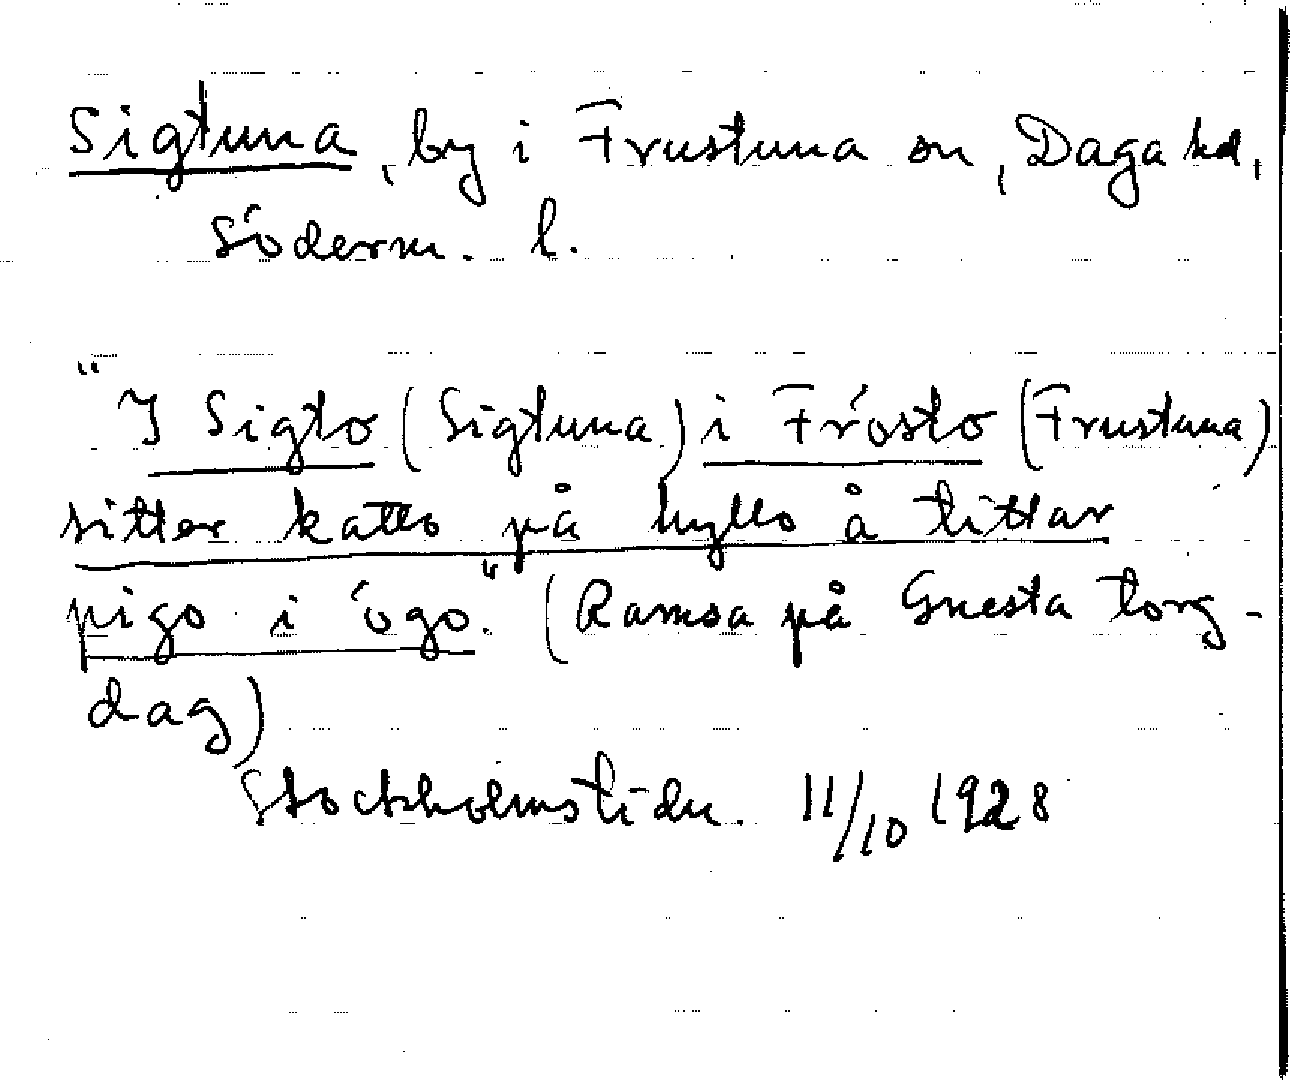 Sigtuna, by i Frustuna sn, Daga hd,
Söderm. l.
"I Sigto (Sigtuna) i Frösto (Frustuna)
sitter katto på hyllo å tittar
pigo i ögo." (Ramsa på Gnesta torg-
dag)
Stockholmstidn. 11/10 1928